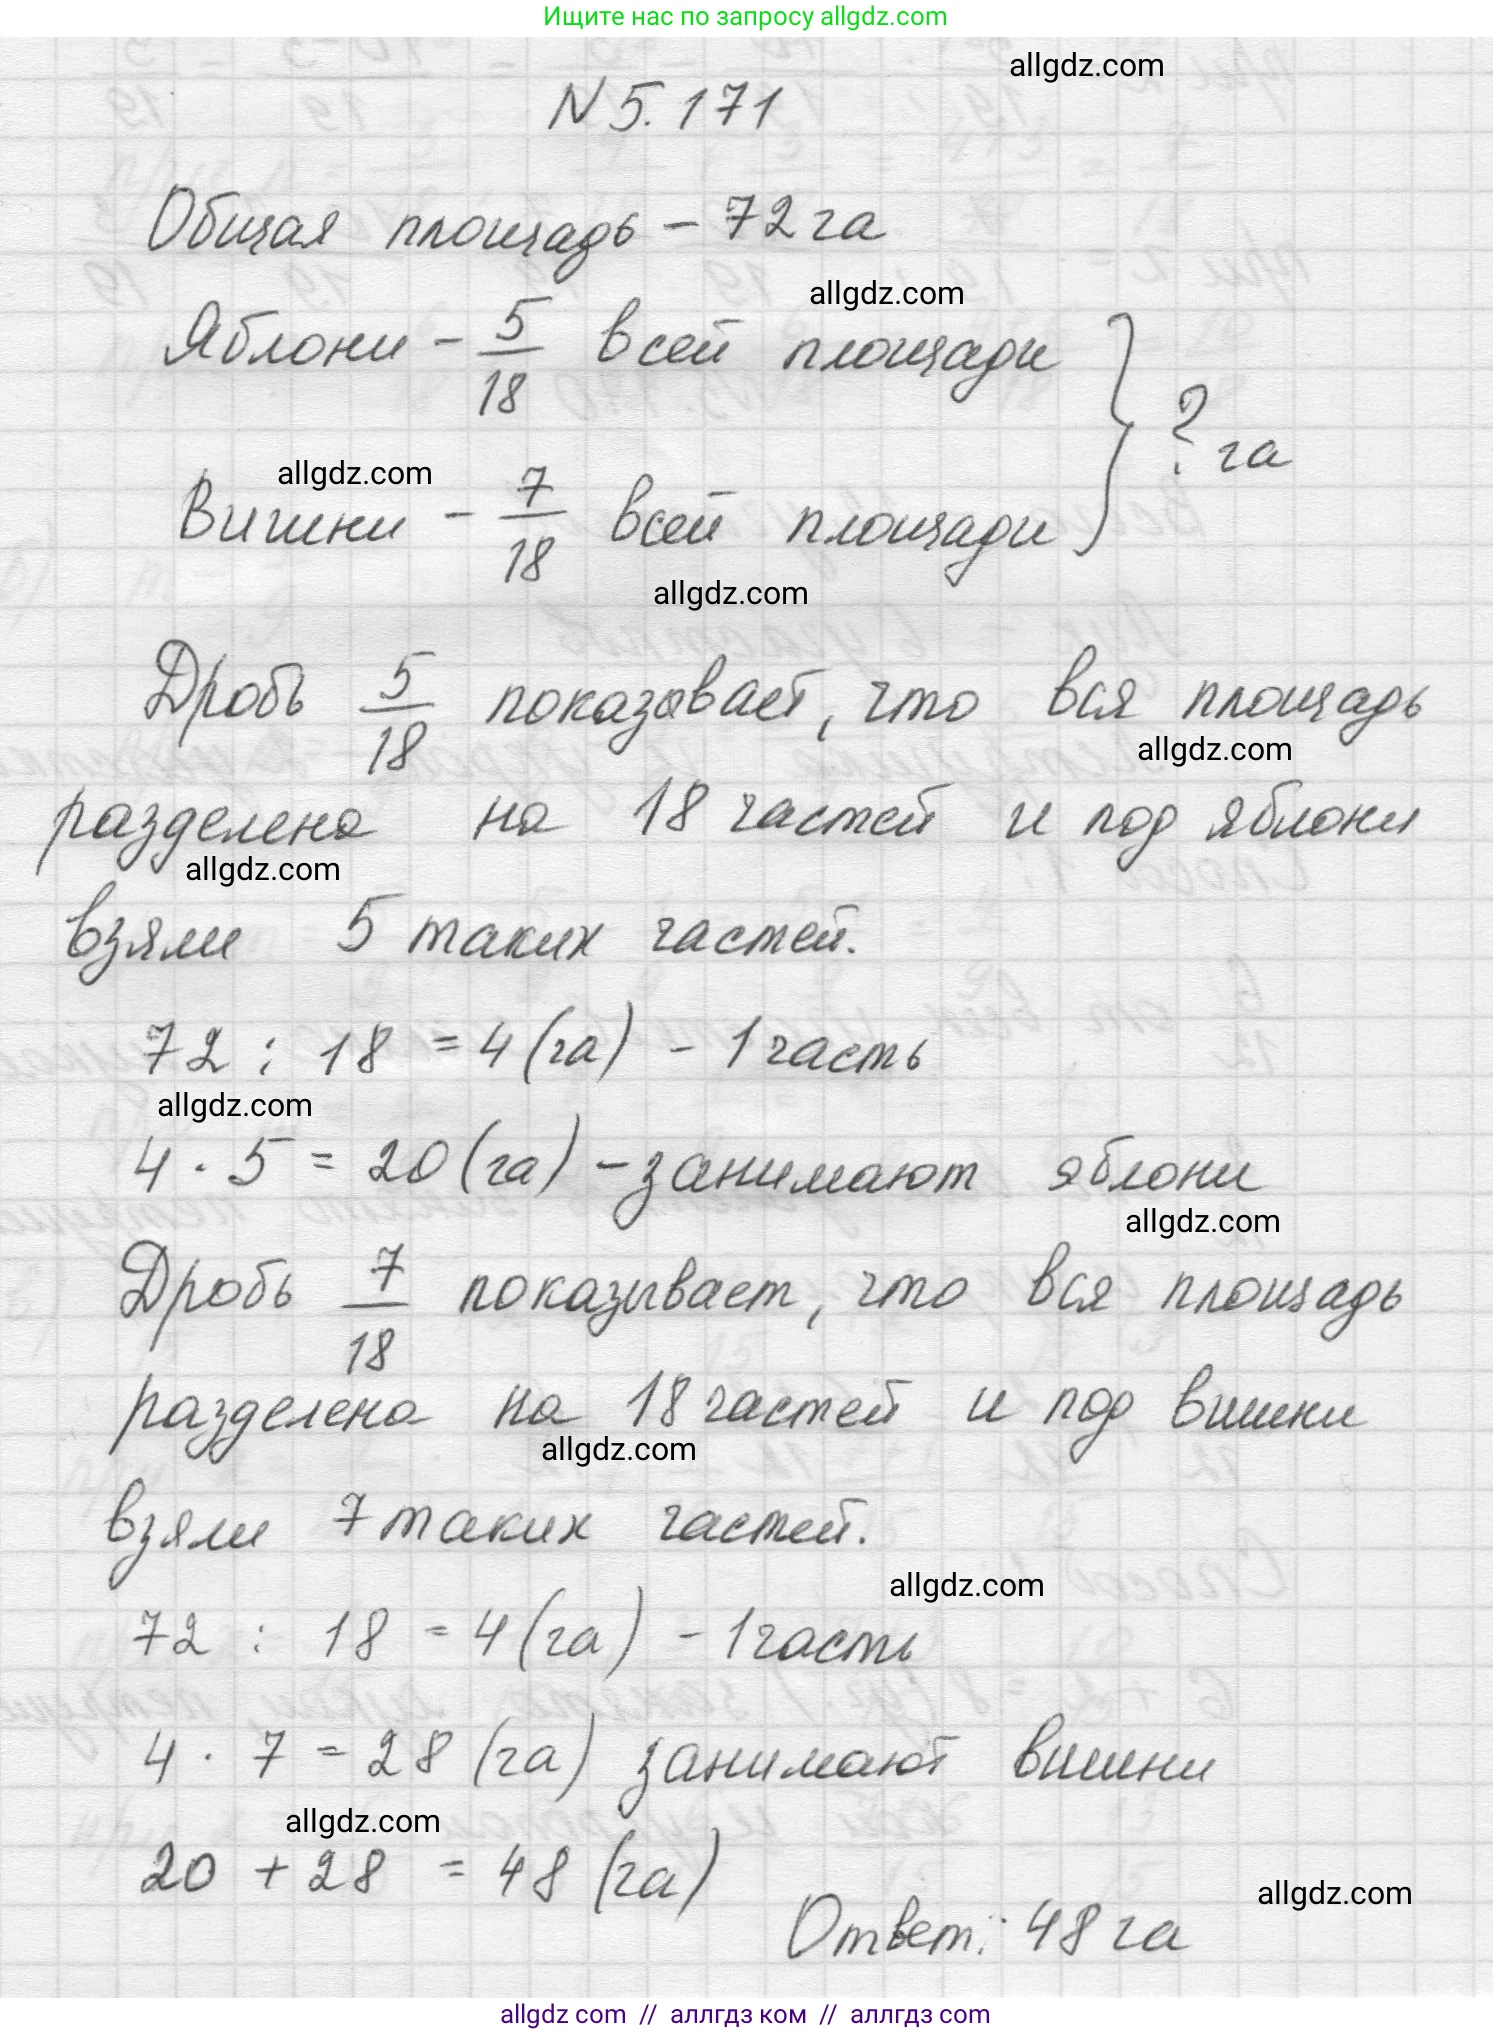 Ищите нас по запросу allgdz.com
allgdz.com
N 5.171
Общая площадь – 72 га
allgdz.com
Яблони – 5/18 всей площади
? га
allgdz.com
Вишни – 7/18 всей площади
allgdz.com
Дробь 5/18 показывает, что вся площадь
allgdz.com
разделена на 18 частей и под яблони
allgdz.com
взяли 5 таких частей.
72 : 18 = 4 (га) – 1 часть
allgdz.com
4 · 5 = 20 (га) – занимают яблони
allgdz.com
Дробь 7/18 показывает, что вся площадь
разделена на 18 частей и под вишни
allgdz.com
взяли 7 таких частей.
allgdz.com
72 : 18 = 4 (га) – 1 часть
4 · 7 = 28 (га) занимают вишни
allgdz.com
20 + 28 = 48 (га)
allgdz.com
Ответ: 48 га
allgdz.com // аллгдз ком // аллгдз.com